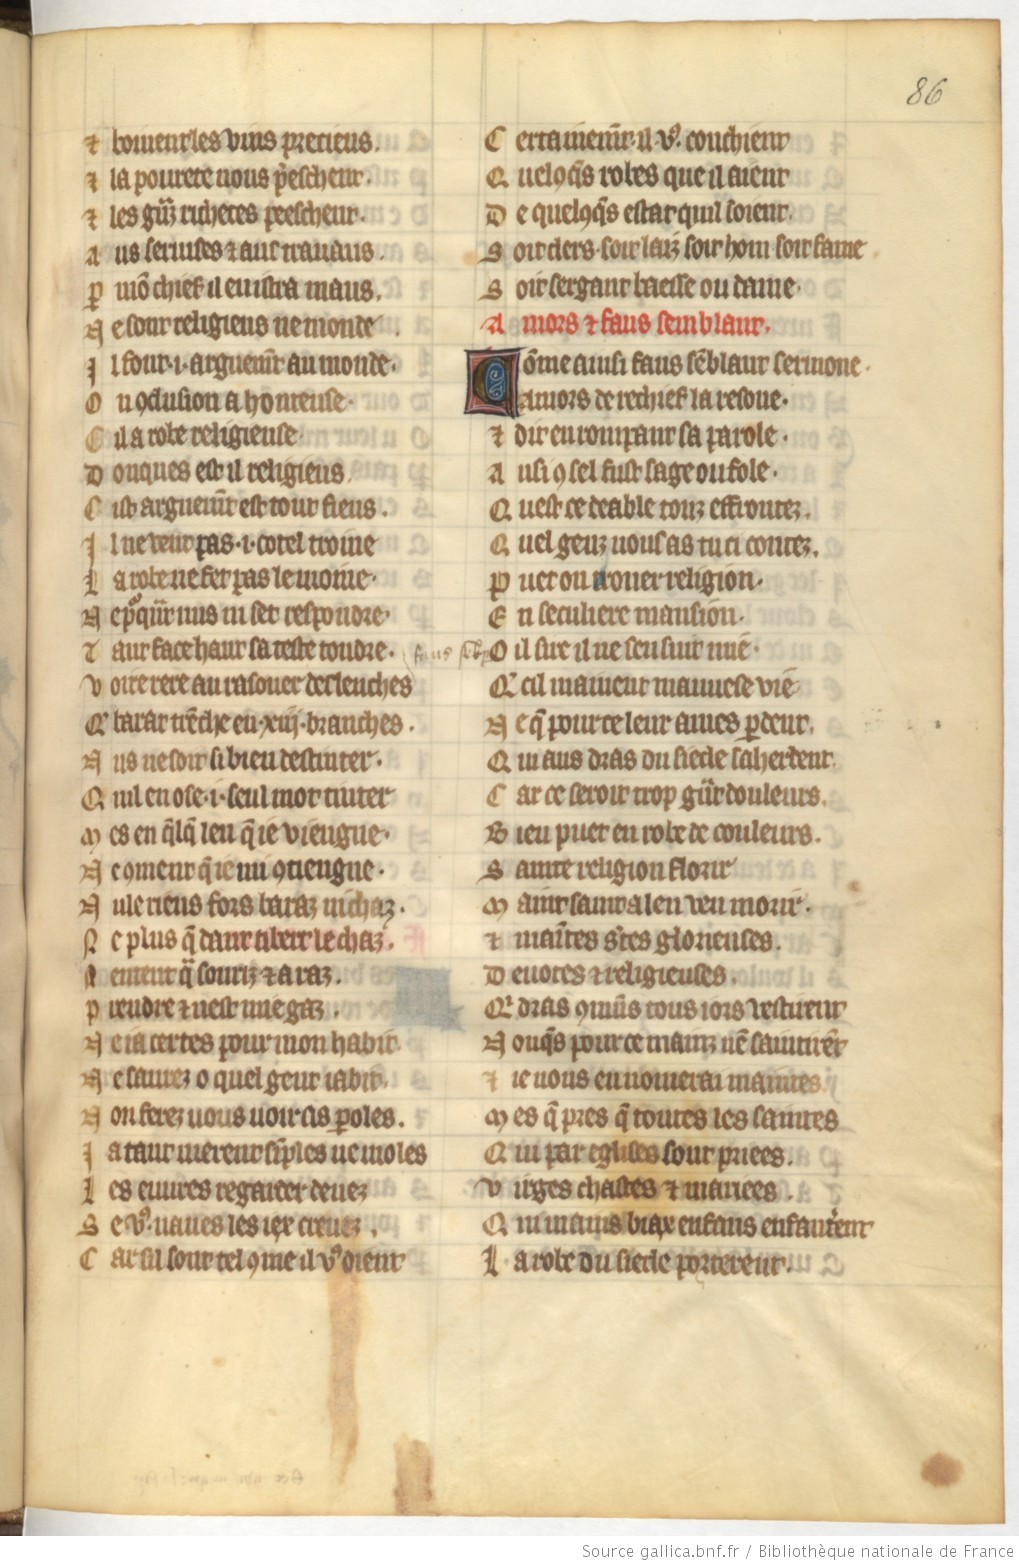 86
⁊ boiuent les vins precieus.
⁊ la pourete uous p̃eschent.
⁊ les gñz richeces peeschent.
A us seruises ⁊ aut trauaus.
P mõ chief il en istra maus.
N e sont religieus ne monde.
I l font .i. arguem̃t au monde.
O u ꝯclusion a honteuse.
C il a robe religieuse.
D onques est il religieus.
C ist arguem̃t est tout fieus.
I l ne veut pas .i. cotel troine
L a robe ne fet pas le moine.
N epͦqͣñt nus ni set respondre.
T ant face haut sa teste tondre.
V oire rere au rasouer desleuches
Qͥ barat trẽche en .xiij. branches.
N us ne soit si bien destinter.
Q uil en ose .i. seul mot tinter
M es en q̃lq̃ leu q̃ ie viengne.
N e ꝯment q̃ ie mi ꝯtiengne.
N ule riens fors baraz ni chaz.
N e plus q̃ dant tibert le chaz.
N entent q̃ souriz ⁊ a raz.
P rendre ⁊ nest mie gaz.
N e ia certes pour mon habit.
N e saurez o quel gent iabit.
N on ferez uous uoir as ꝑoles.
J a tant nierent sĩples ne moles
L es euures regarder deuez
S e vͦ. naues les iex creuez.
C ar sil font tel ꝯme il vͦ dient
C ertainem̃t. il vͦ. conchient
Q uelq̃s robes que il aient
D e quelq̃s estat quil soient.
S oit clers. soit laiz soit hom soit fame
S oit sergant baesse ou dame.
A mors ⁊ faus semblant.
C õme ainsi faus sẽblant sermone.
amors de rechief la resone.
⁊ dit en rompant sa parole.
A usi ꝯ sel fust sage ou fole.
Q uest ce deable touz effrontez.
Q uel genz nous as tu ci contez.
P uet on trouer religion.
E n seculiere mansion.
O il sire il ne sensuit mie.
Qͥ cil mainent mauuese vie
N e q̃ pour ce leur ames ꝑdent.
Q ui aus dras du siecle saherdent
C ar ce seroit trop gñt douleurs.
B ien puet en robe de couleurs.
S ainte religion florir
M aint saint a len veu morir.
⁊ maĩtes s̃tes glorieuses.
D euotes ⁊ religieuses.
Qͥ dras ꝯmũs tous iors vestirent
N onq̃s pour ce mainz nẽ saintirẽt
⁊ ie uous en nomerai maintes
M es q̃ pres q̃ toutes les saintes
Q ui par eglises sont priees.
V irges chastes ⁊ mariees.
Q ui mains biax enfans enfanterẽt
L a robe du siecle porterent.
Source gallica.bnf.fr / Bibliothèque nationale de France